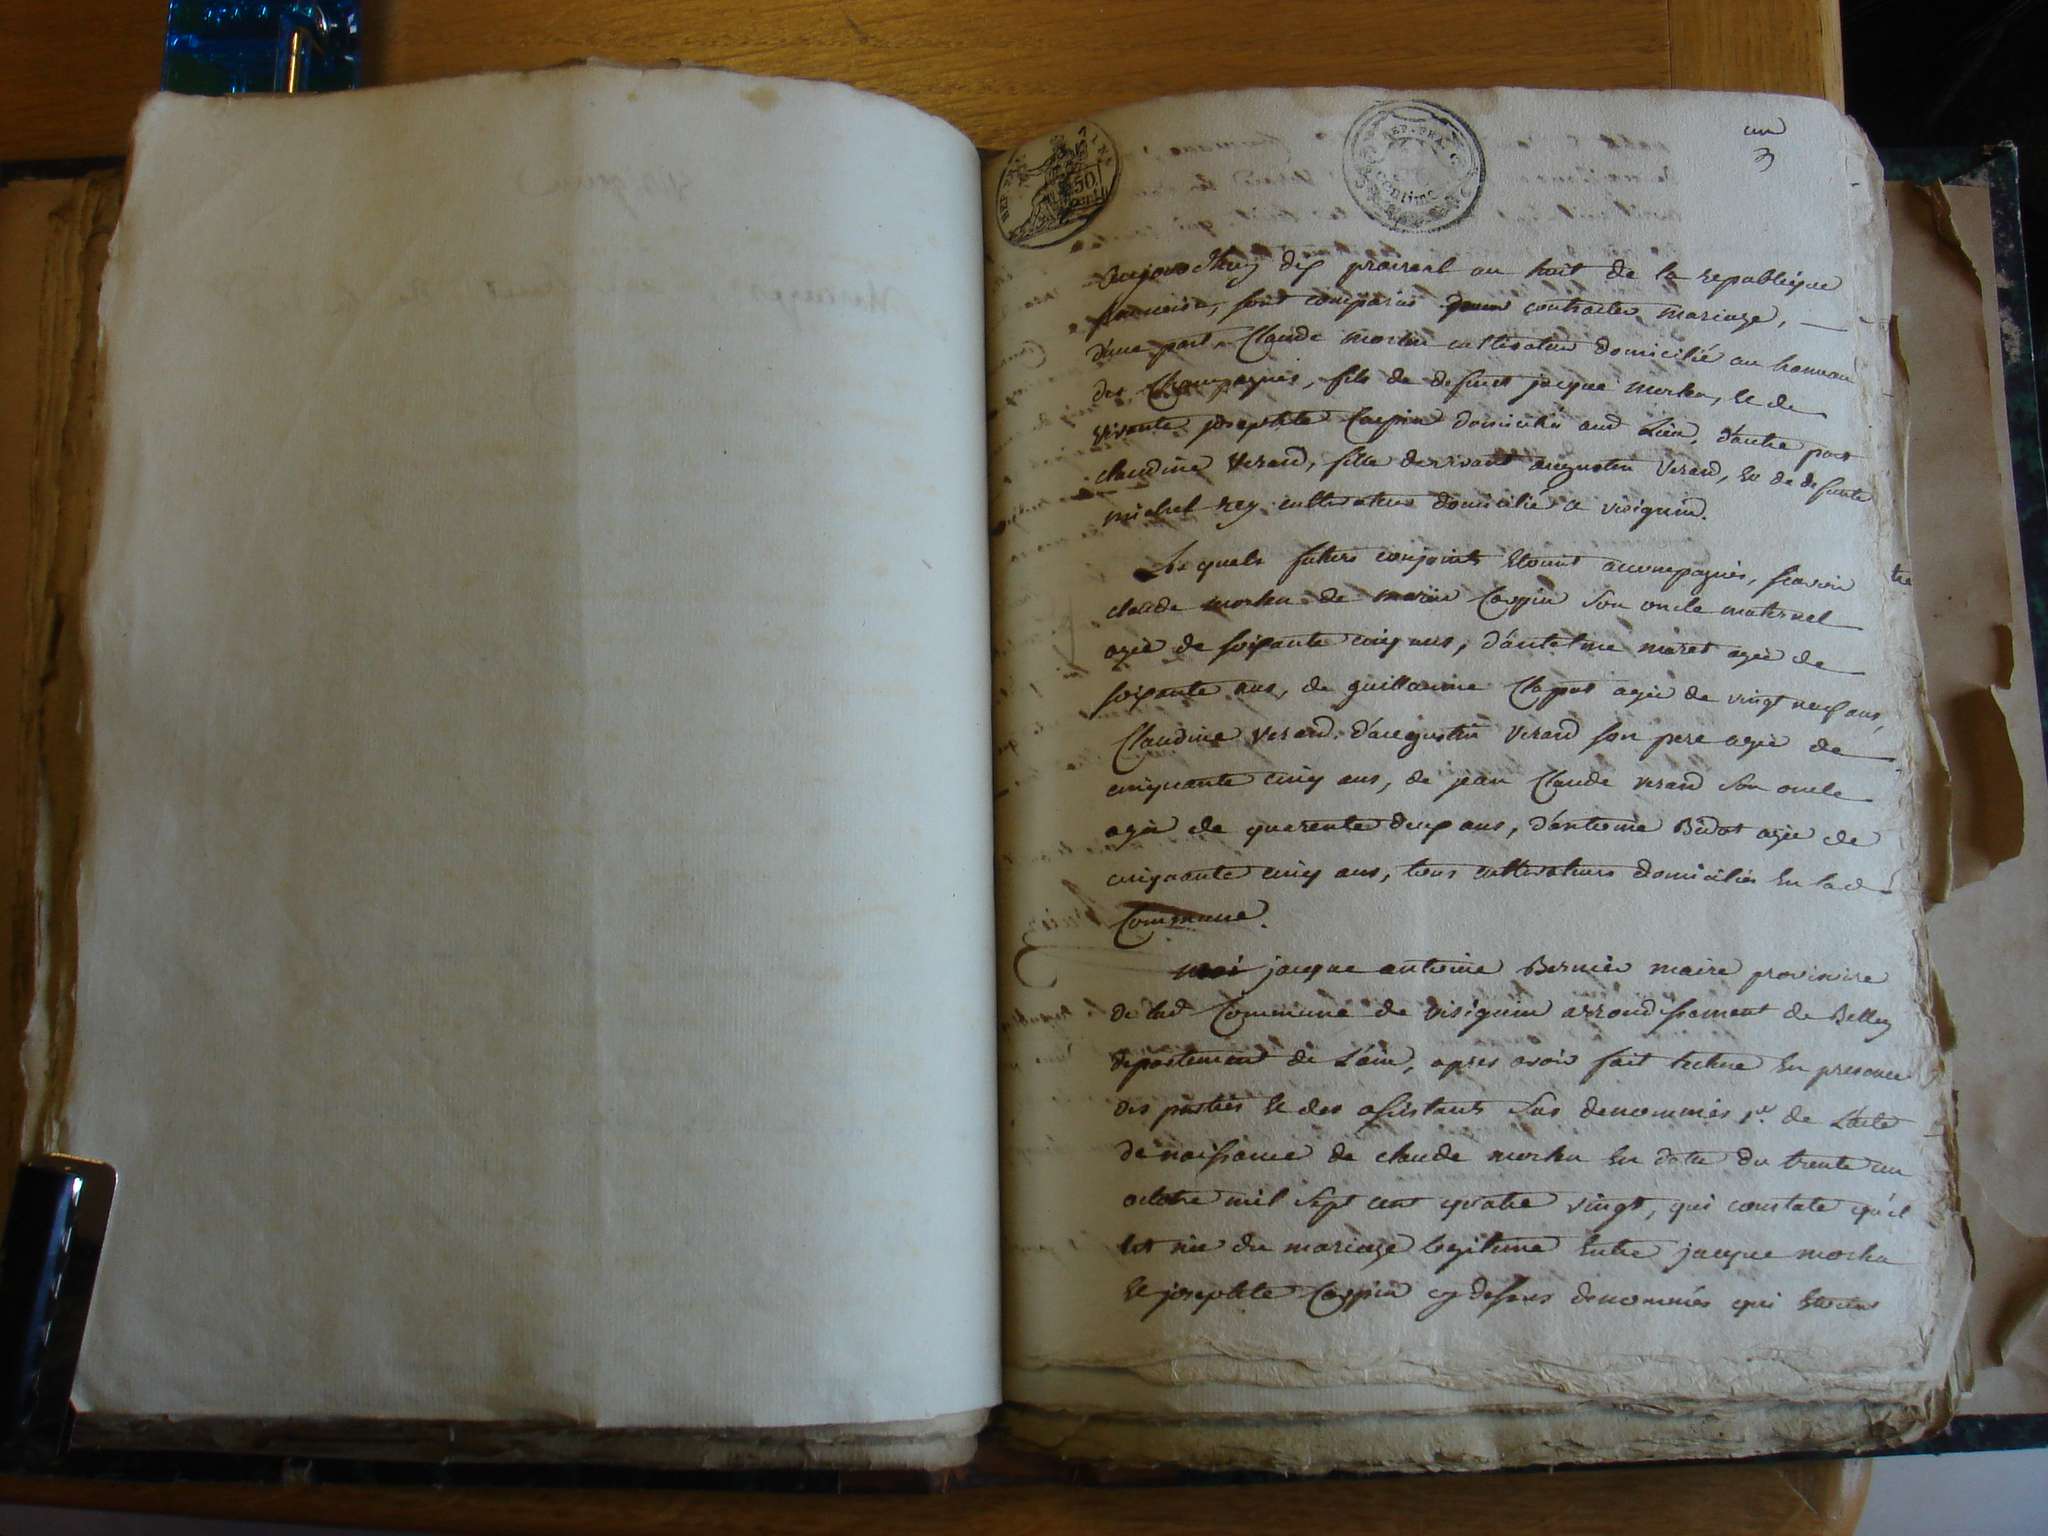 un
3
REP. FRA.
50
centimes
aujourdhuy dix prairial an huit de la republique
francaise, sont comparus pour contracter mariage, —
d'une part, Claude morlin cultivateur domicilié au hameau
des Champagnes, fils de defunt jacque morlin, et de
vivante josephte Carpin domiciliée aud Lieu, d'autre part
claudine Verand, fille de vivant augustin Verand, et de defunte
michel rey cultivateur domicilié a virignin.
Les quels futurs conjoints etoient accompagnés, scavoir
claude morlin de Carpin son oncle maternel
agée de soixante cinq ans, d'antelme maret agée de
soixante ans, de guillaume Clapot agée de vingt neuf ans,
Claudine Verand, d'augustin Verand son pere agée de
cinquante cinq ans, de jean Claude verand son oncle
agée de quarente deux ans, d'antoine Bidot agée de
cinquante cinq ans, tous cultivateurs domiciliés en lad
Commune.
moi jacque antoine Bernier maire provisoire
de lad Commune de virignin arrondissement de Belley
departement de L'ain, apres avoir fait lecture en presence
des parties et des assistants sus denommés 1º. de L'acte
de naissance de claude morlin en date du trente un
octobre mil sept cent quatre vingt, qui constate qu'il
est née du mariage legitime entre jacque morlin
et josephte Carpin cy dessus denommés qui etoient